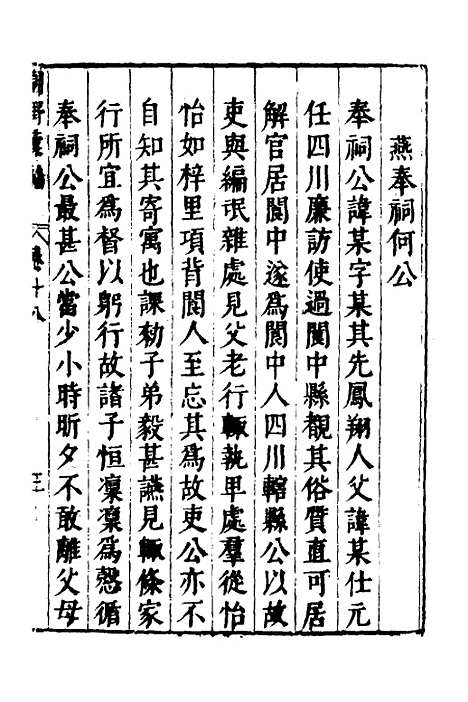 燕奉祠何公
奉祠公諱某字某其先鳳翔人父諱某仕元
任四川廉訪使過閬中縣觀其俗質直可居
解官居閬中遂爲閬中人四川轄縣公以故
吏與編氓雜處見父老行輒執卑處羣從怡
怡如梓里項背閬人至忘其爲故吏公亦不
自知其寄寓也課勑子弟毅甚讌見輒條家
行所宜爲督以躬行故諸子恒稟稟爲愨循
奉祠公最甚公當少小時昕夕不敢離父母
卷十八